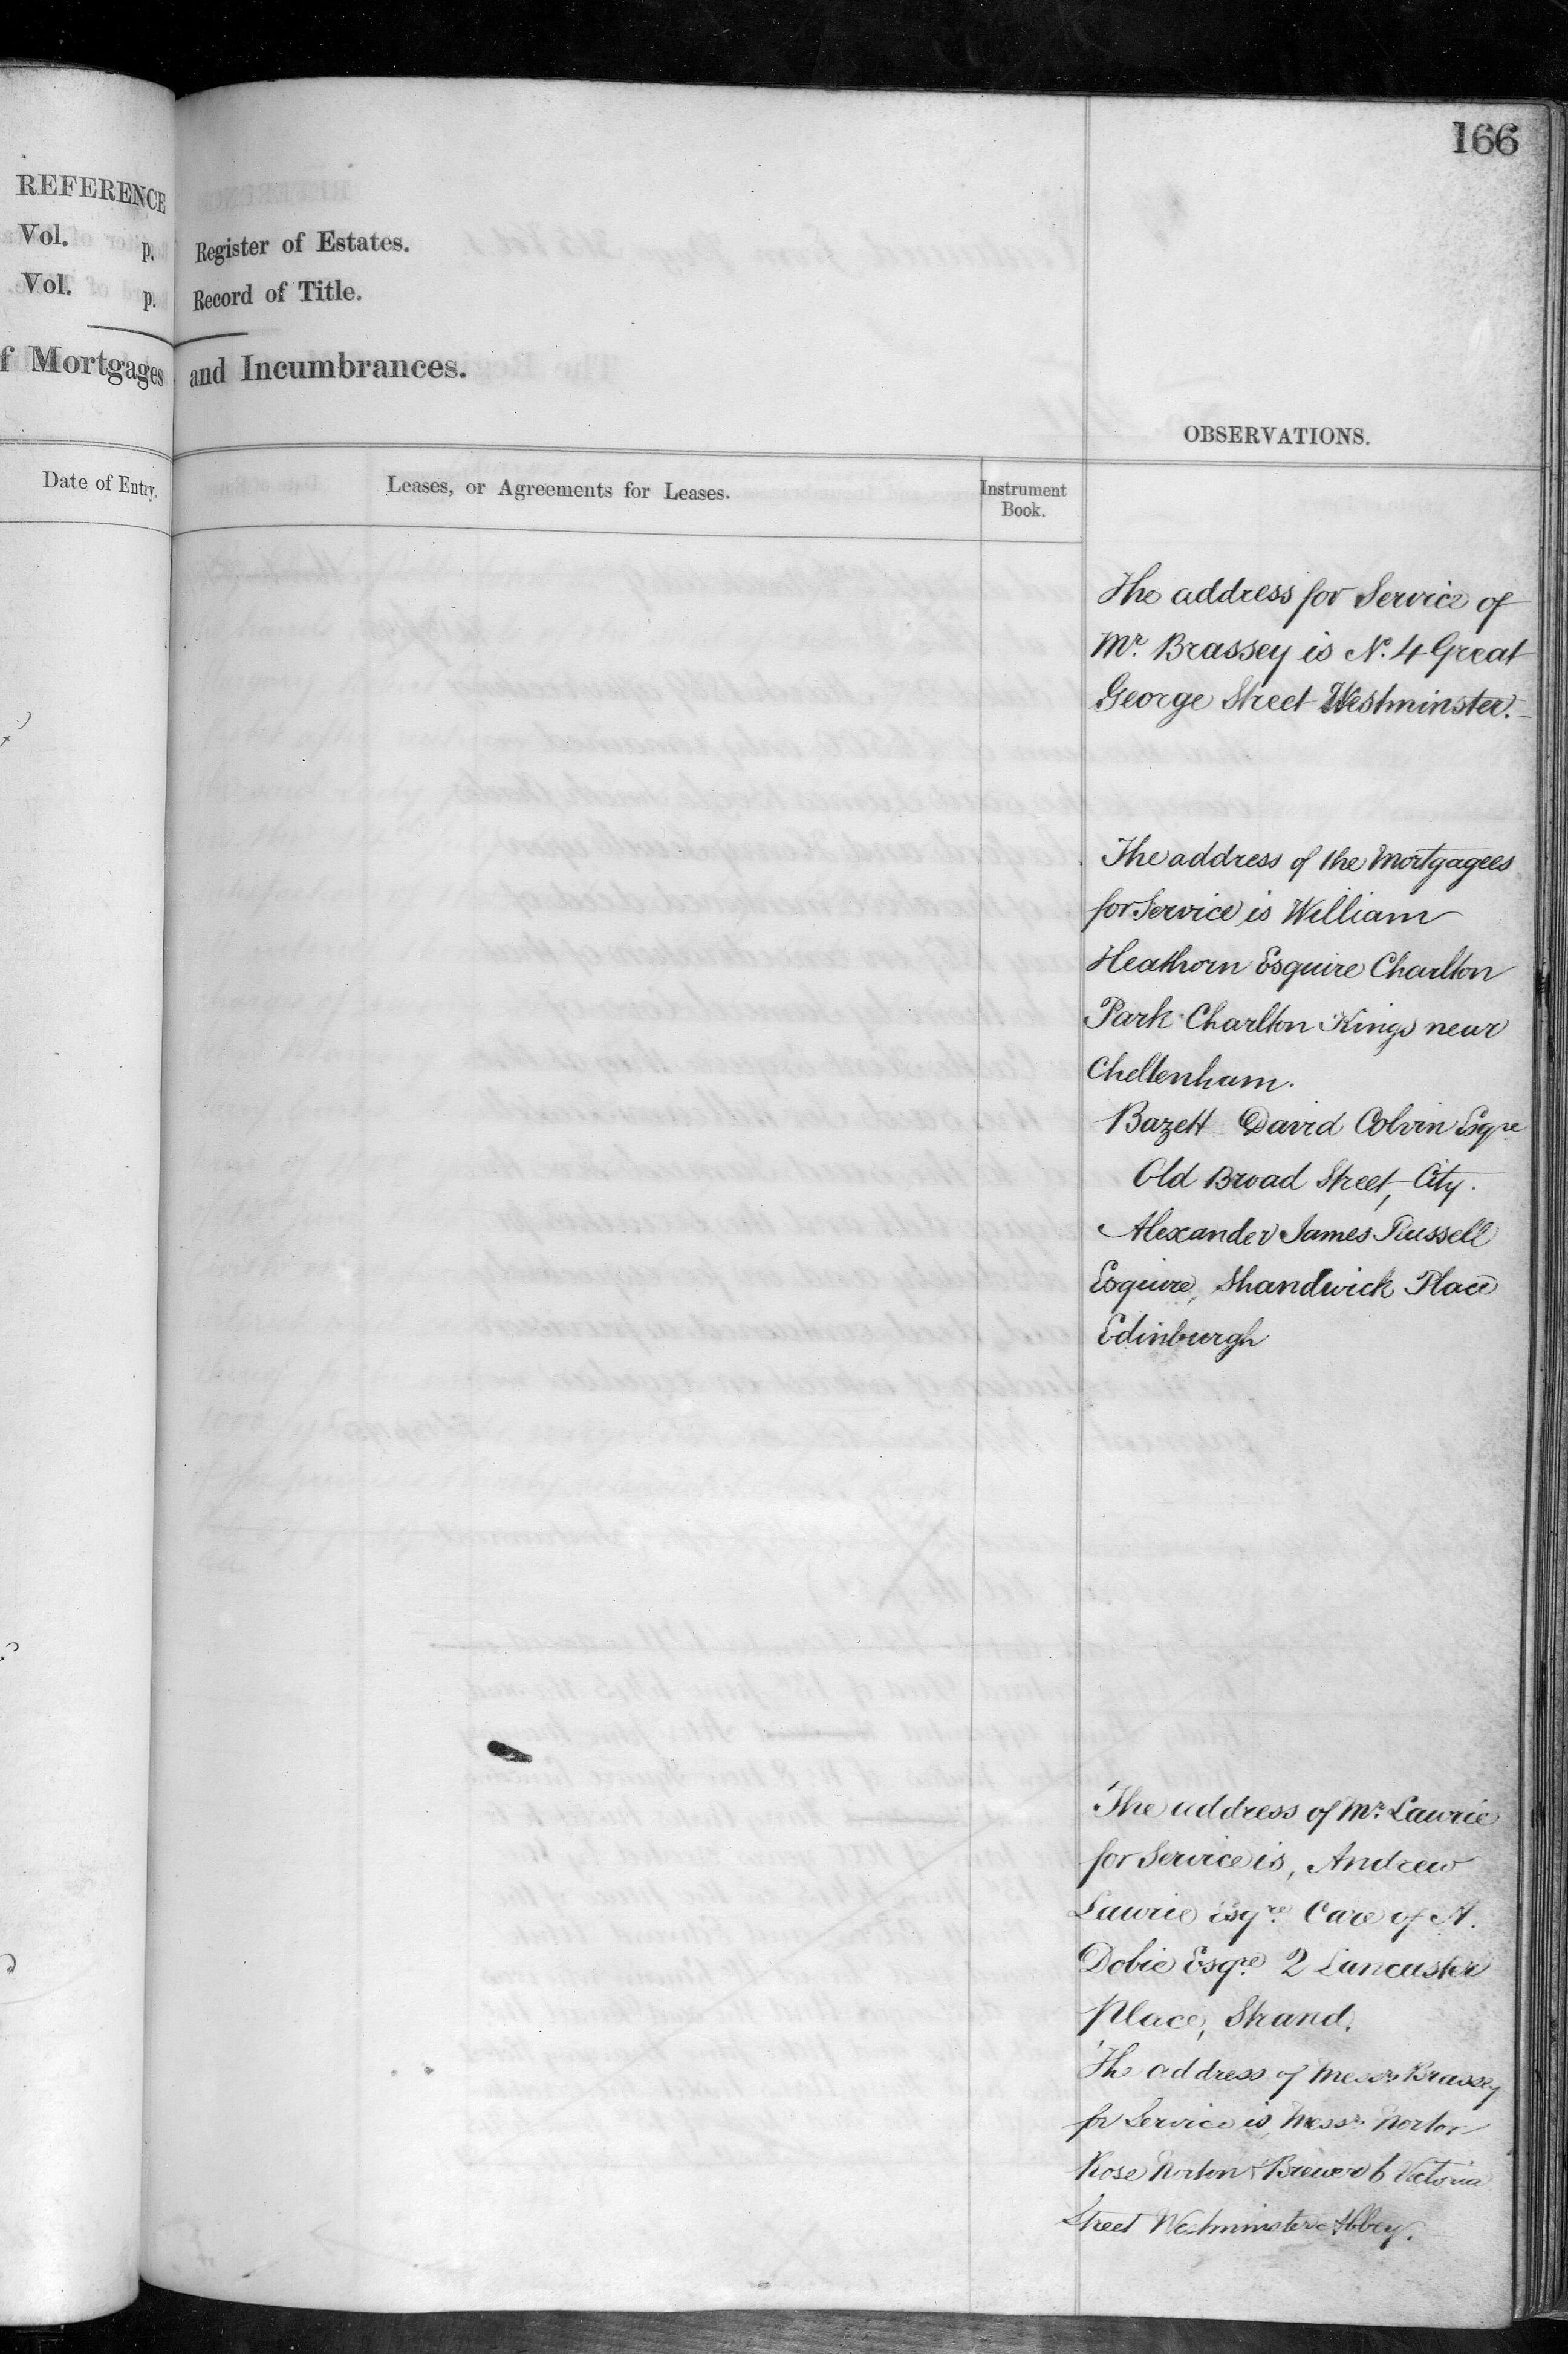 166
REFERENCE
Vol. p. Register of Estates.
Vol. p. Record of Title.
f Mortgages and Incumbrances.
OBSERVATIONS.
Date of Entry.
Leases, or Agreements for Leases.
Instrument
Book.
The address for Service of
Mr. Brassey is No. 4 Great
George Street Westminster.
The address of the Mortgagees
for Service is William
Heathorn Esquire Charlton
Park Charlton Kings near
Cheltenham.
Bazett David Colvin Esqre
Old Broad Street, City.
Alexander James Russell
Esquire, Shandwick Place
Edinburgh
The address of Mr. Laurie
for Service is, Andrew
Laurie Esqre. Care of A.
Dobie Esqre. 2 Lancaster
Place, Strand.
The address of Messrs Brassey
for Service is, Messrs. Norton
Rose Norton & Brewer 6 Victoria
Street Westminster Abbey.